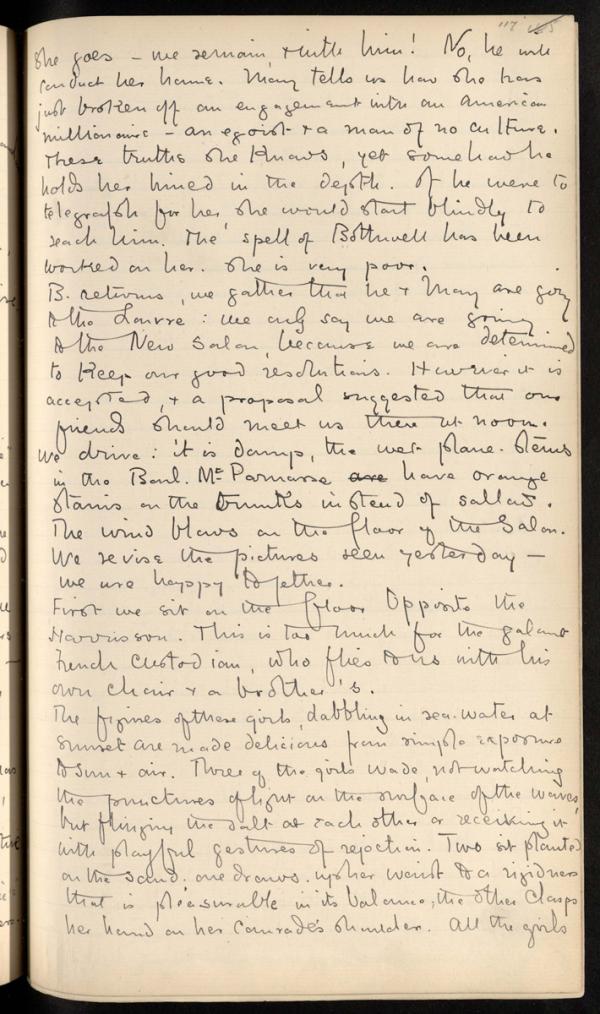 117
She goes – we remain, & with him! No, he will
conduct her home. Mary tells us how she has
just broken off an engagement with an American
millionaire – an egoist & a man of no culture.
These truths she knows, yet somehow he
holds her mind in the depth. If he were to
telegraph for her she would start blindly to
reach him. The spell of Bothwell has been
worked on her. She is very poor.
B. returns, we gather that he & Mary are going
to the Louvre: we only say we are going
to the New Salon, because we are determined
to keep our good resolutions. However it is
accepted, & a proposal suggested that our
friends should meet us there at noon.
We drive: it is damp, the wet plane-stems
in the Boul. Mt Parnasse are have orange
stains on the trunks instead of sallow.
The wind blows on the floor of the Salon.
We revise the pictures seen yesterday –
we are happy together.
First we sit on the floor opposite the
Harrisson. This is too much for the galant
French custodian, who flies to us with his
own chair & a brother's.
The figures of these girls, dabbling in sea-water at
sunset are made delicious from simple exposure
to sun & air. Three of the girls wade, not watching
the punctures of light on the surface of the waves,
but flinging the salt at each other or receiving it
with playful gestures of rejection. Two sit planted
on the sand. one draws up her waist to a rigidness
that is pleasurable in its balance, the other clasps
her hand on her comrade's shoulder. All the girls